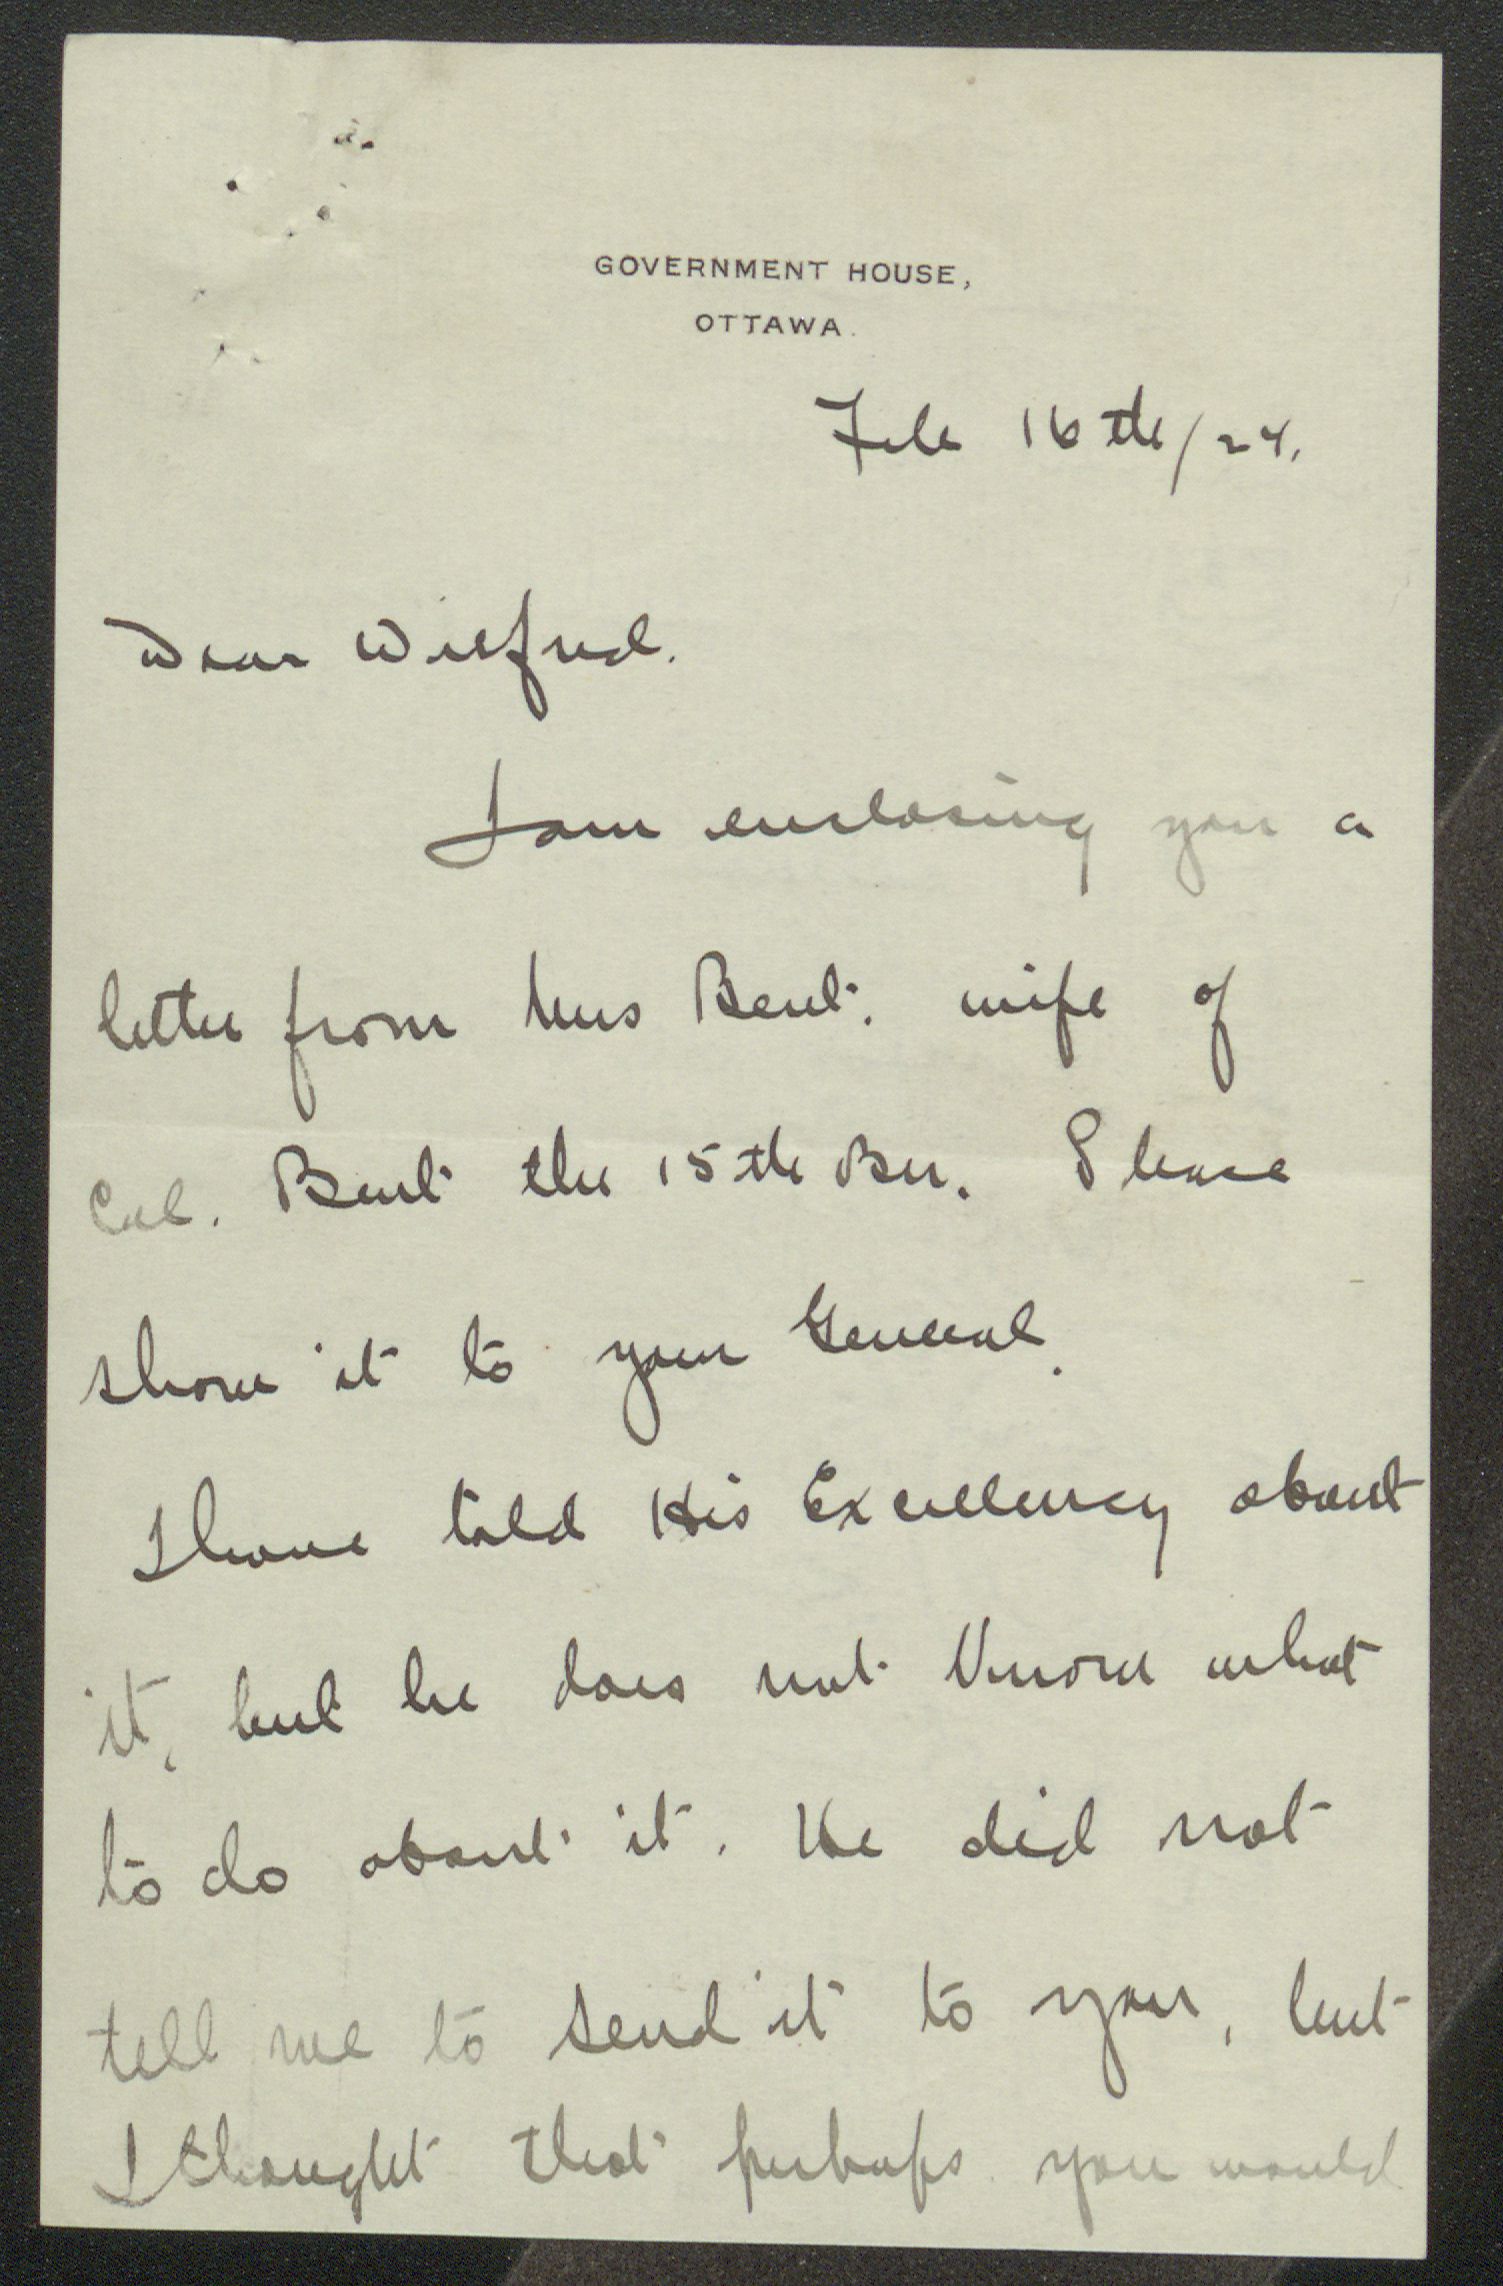 GOVERNMENT HOUSE,
OTTAWA.
Feb 16th/24.
Dear Wilfred.
I am enclosing you a
letter from Mrs Bent. wife of
Col. Bent the 15th Bn. Please
show it to your General.
I have told His Excellency about
it, but he does not know what
to do about it. He did not
tell me to send it to you, but
I thought that perhaps you would